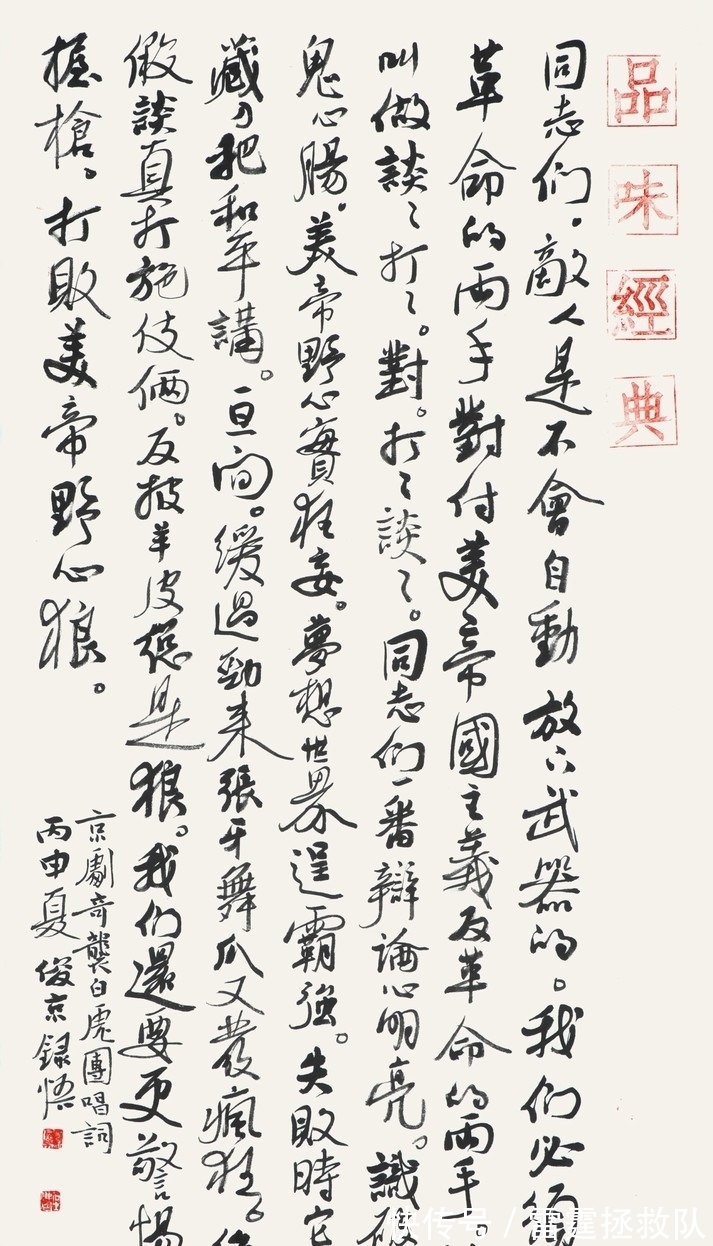 品味經典
同志們。敵人是不會自動放下武器的。我們必須
革命的兩手對付美帝國主義反革命的兩手。
叫做談〻打〻。對。打〻談〻。同志們一番辯論心明亮。識破
鬼心腸。美帝野心實狂妄。夢想世界逞霸強。失敗時它
藏刀把和平講。一旦間。緩過勁來張牙舞爪又發瘋狂。
假談真打施伎倆。反披羊皮總是狼。我們還要更警惕
握槍。打敗美帝野心狼。
京劇奇襲白虎團唱詞
丙申夏 俊京錄悟
快传号／雷霆拯救队